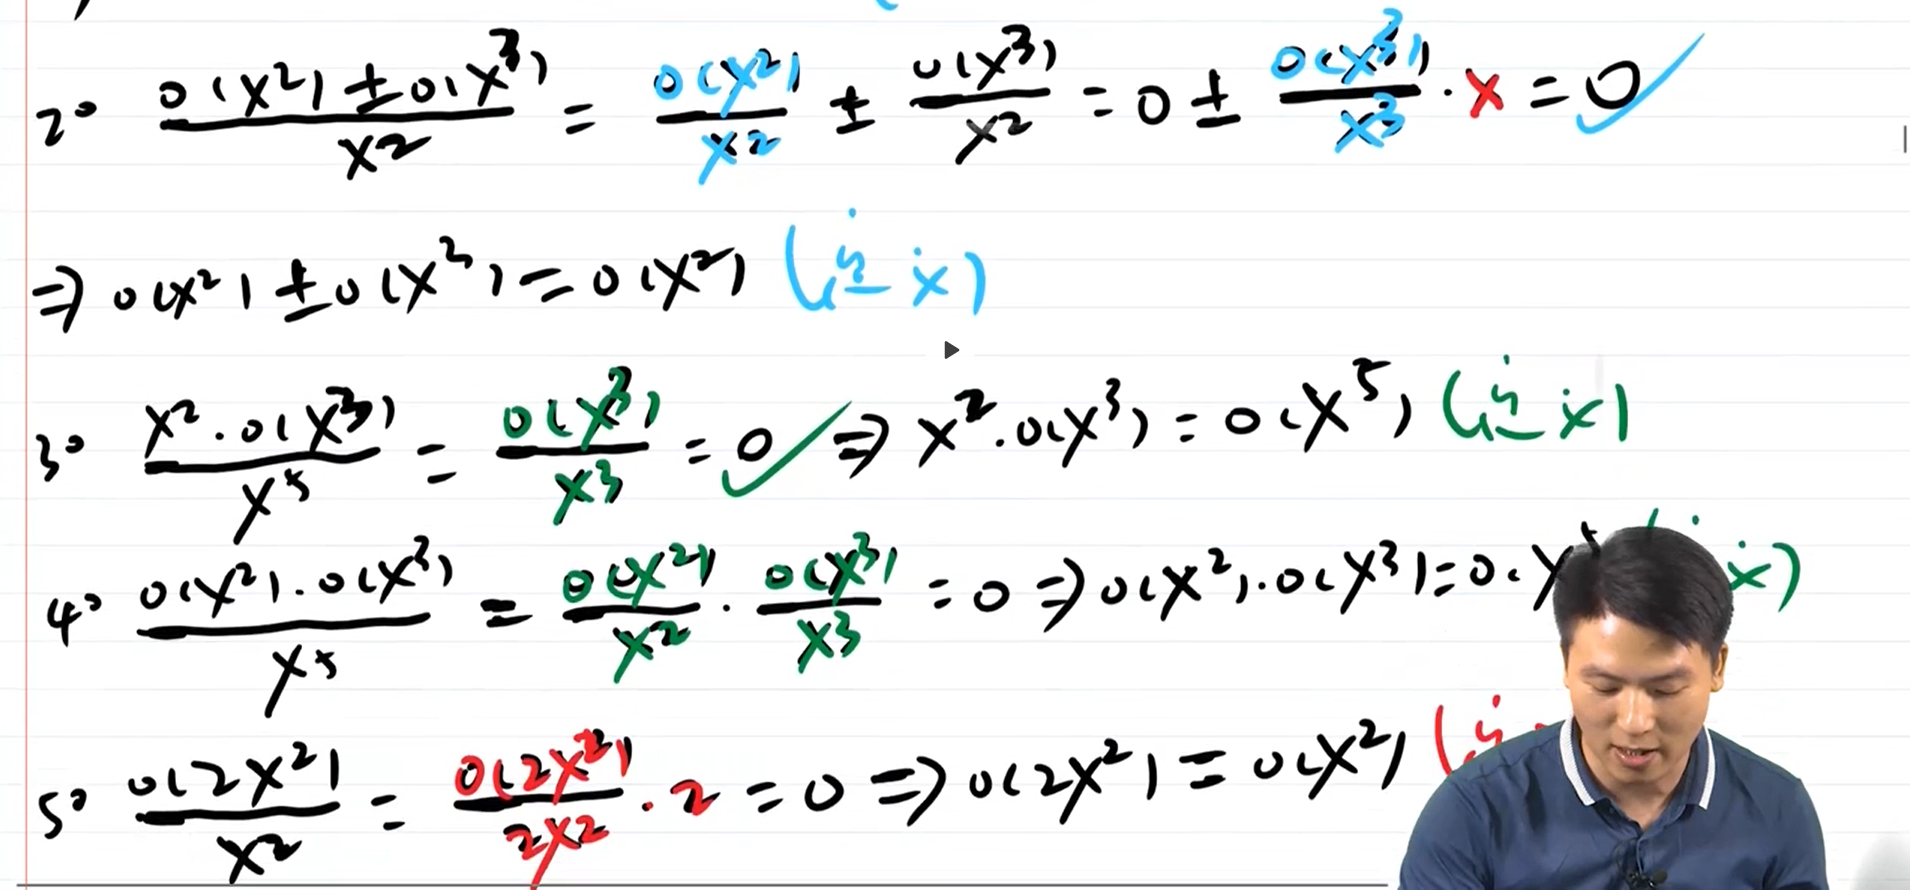 2° (o(x²) ± o(x³))/x² = o(x²)/x² ± o(x³)/x² = 0 ± o(x³)/x³ · x = 0 ✓
⇒ o(x²) ± o(x³) = o(x²) (证×)
3° (x² · o(x³))/x⁵ = o(x³)/x³ = 0 ✓ ⇒ x² · o(x³) = o(x⁵) (证×)
4° (o(x²) · o(x³))/x⁵ = o(x²)/x² · o(x³)/x³ = 0 ⇒ o(x²) · o(x³) = o(x ×)
5° o(2x²)/x² = o(2x²)/2x² · 2 = 0 ⇒ o(2x²) = o(x²)